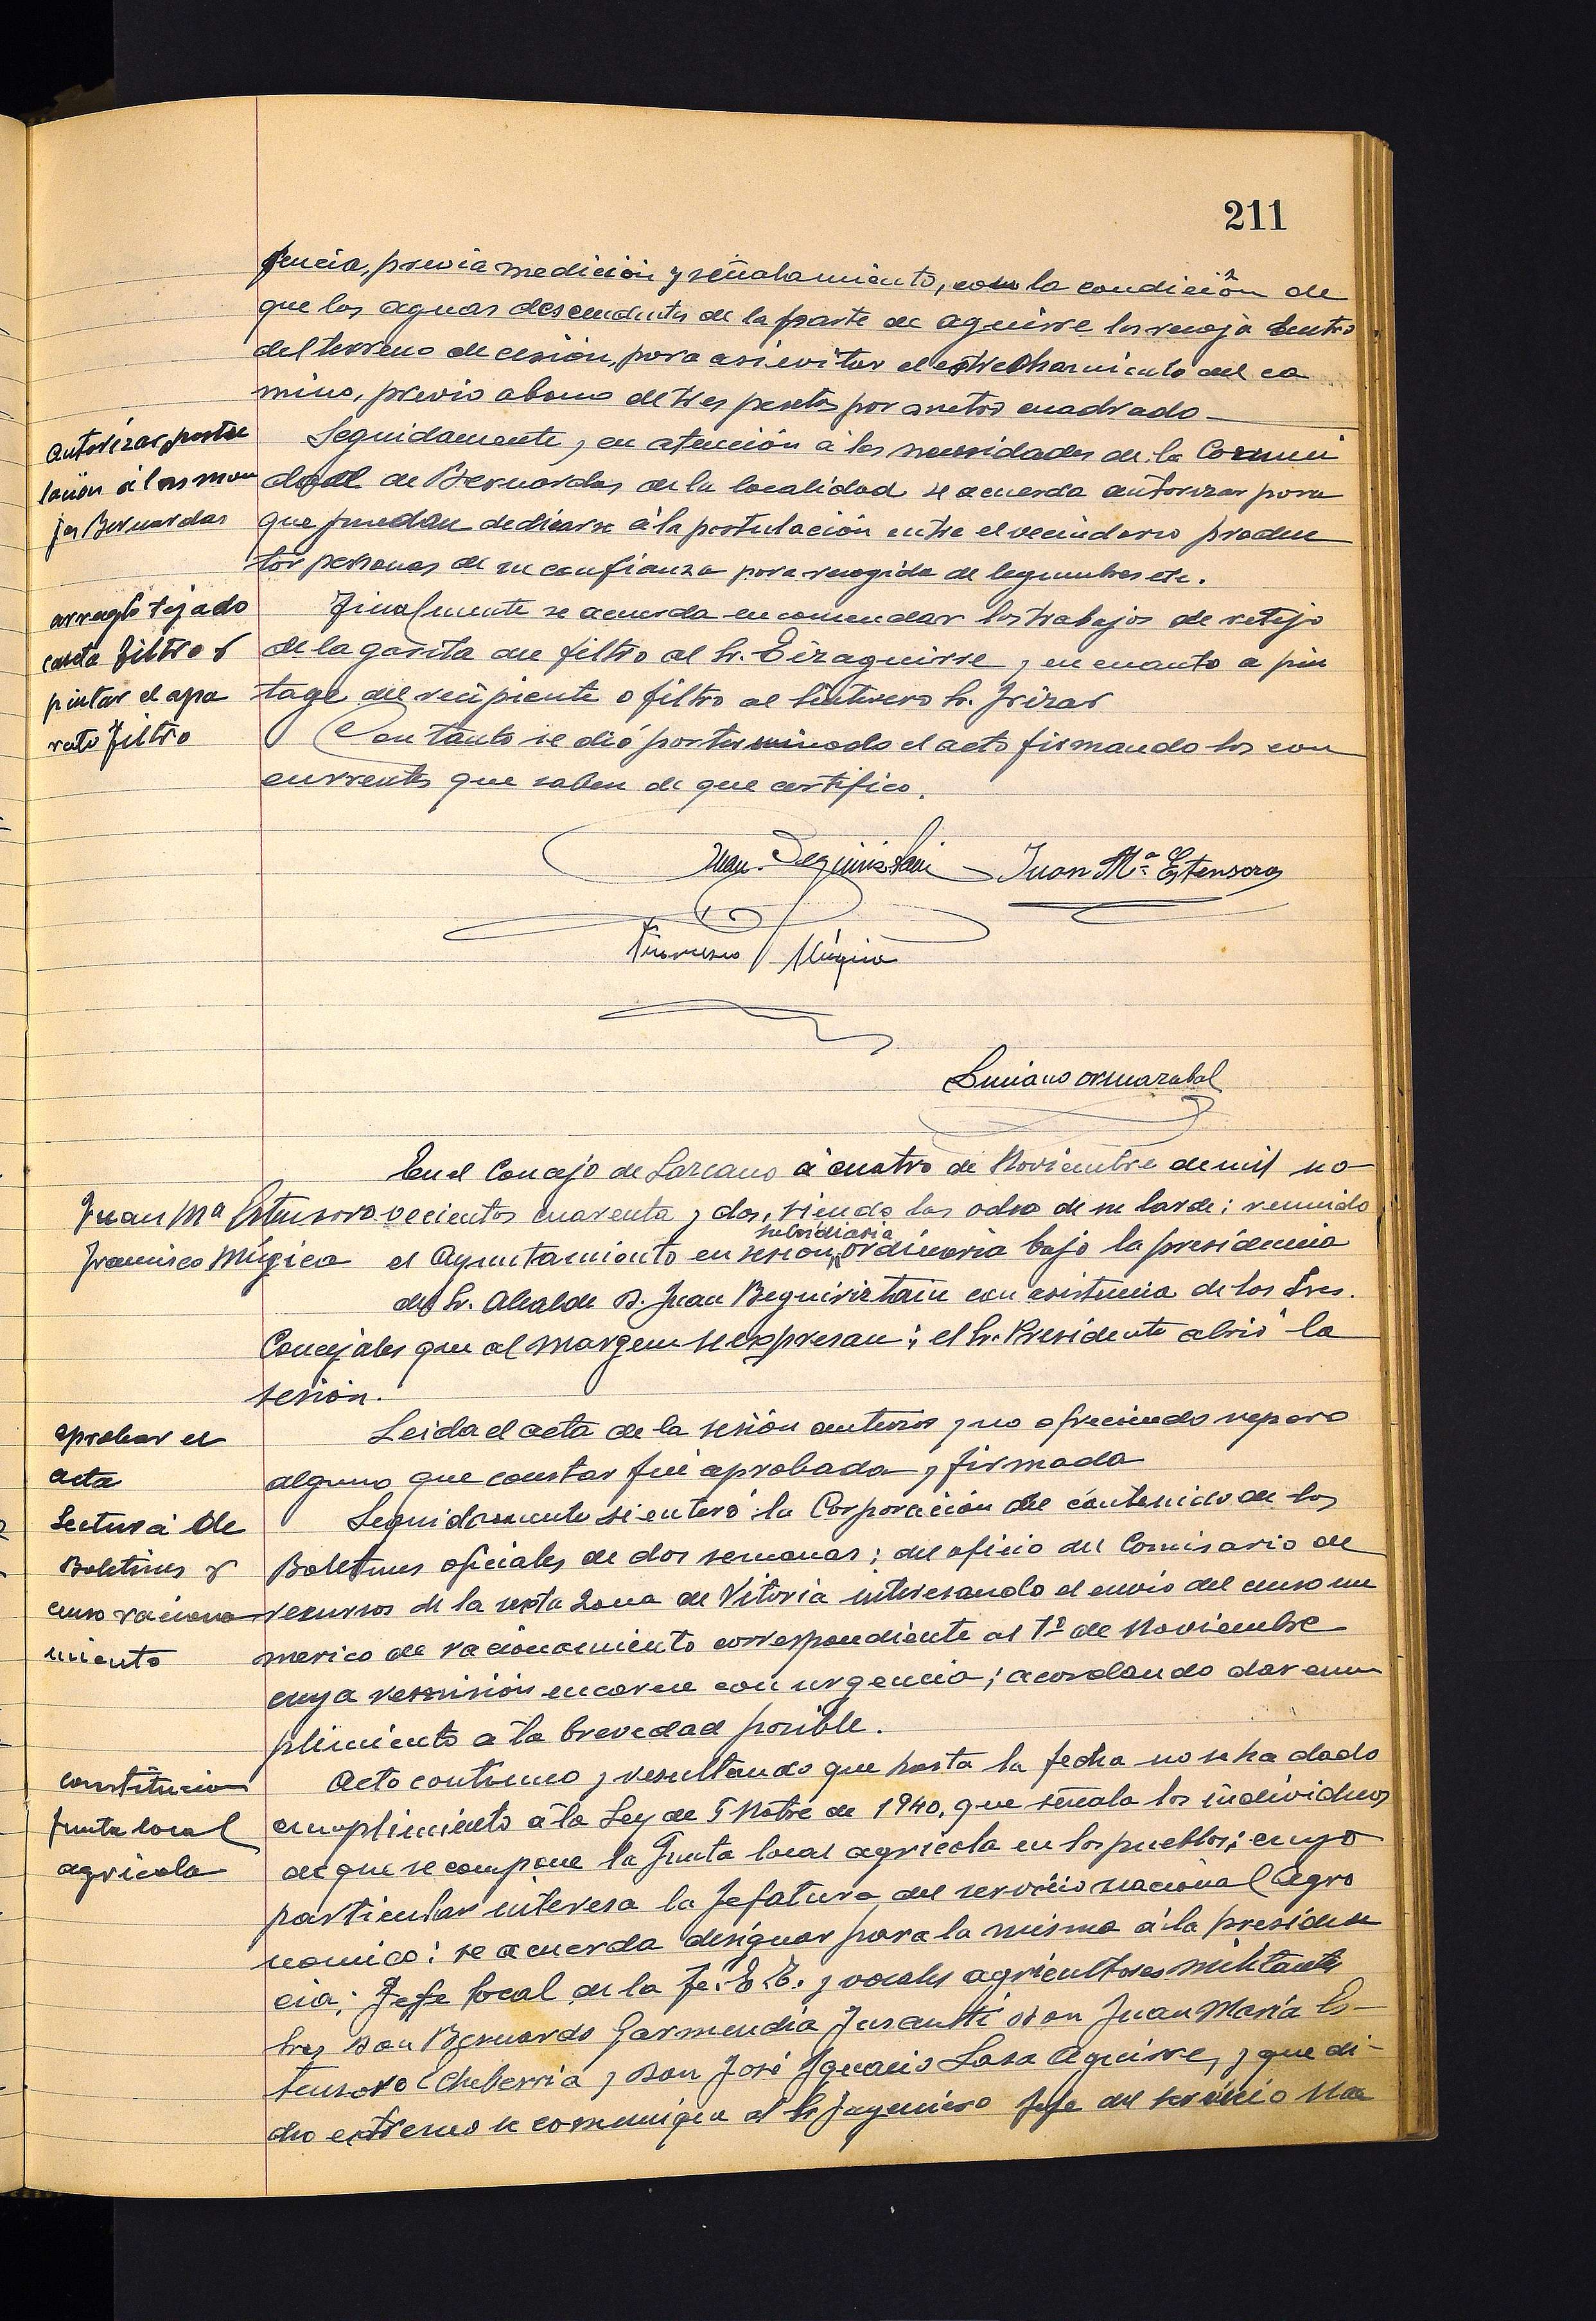 211
gencia, previa medición y señalamiento, con la condición de
que las aguas descendentes de la parte de aguirre las recoja dentro
del terreno de cesión, para asi evitar el estrechamiento del ca
mino, previo abono de tres pesetas por metro cuadrado
autorizar postu
lación á las mon
jas Bernardas
Seguidamente, en atención á las necesidades de la Comuni
dad de Bernardas de la localidad se acuerda autorizar para
que puedan dedicarse á la postulación entre el vecindario produc
tor personas de su confianza para recogida de legumbres etc.
arreglo tejado
caseta filtro y
pintar el apa
rato filtro
Finalmente se acuerda encomendar los trabajos de retejo
de la garita de filtro al Sr. Eizaguirre, en cuanto a pin
tage del recipiente o filtro al Sr. Irizar
Con tanto se dió por terminado el acto firmando los con
currentes que saben de que certifico.
Juan Beguiristain Juan Mª Estensoro
Francisco Múgica
Luciano Ormazabal
En el Concejo de Lazcano á cuatro de Noviembre de mil no-
Juan Mª Estensoro
vecientos cuarenta y dos, siendo las ocho de su tarde; reunido
subsidiaria
Francisco Múgica
el Ayuntamiento en sesion ordinaria bajo la presidencia
del Sr. Alcalde D. Juan Beguiriztain con asistencia de los Sres.
Concejales que al margen se expresan; el Sr. Presidente abrió la
sesión.
aprobar el
acta
Leida el acta de la sesión anterior y no ofreciendo reparo
alguno que constar fue aprobada y firmada
Lectura de
Boletines y
censo raciona
miento
Seguidamente se enteró la Corporación del contenido de los
Boletines oficiales de dos semanas; del oficio del Comisario de
recursos de la sexta zona de Vitoria interesando el envio del censo nu
merico de racionamiento correspondiente al 1º de Noviembre
cuya remisión encarece con urgencia; acordando dar cum
plimiento a la brevedad posible.
constitucion
Junta local
agricola
Acto continuo y resultando que hasta la fecha no se ha dado
cumplimiento á la Ley de 5 Nbre de 1940, que señala los individuos
de que se compone la Junta local agricola en los pueblos; cuyo
particular interesa la Jefatura del servicio nacional Agro
nomico: se acuerda designar para la misma á la presiden
cia; Jefe local de la Fe. E. T. y vocales agricultores militantes
tres Don Bernardo Garmendia Jusantti Don Juan Maria Es-
tensoro Echeberria y Don José Ignacio Lasa Aguirre, y que di-
cho extremo se comunique al Sr Ingeniero Jefe del servicio Na